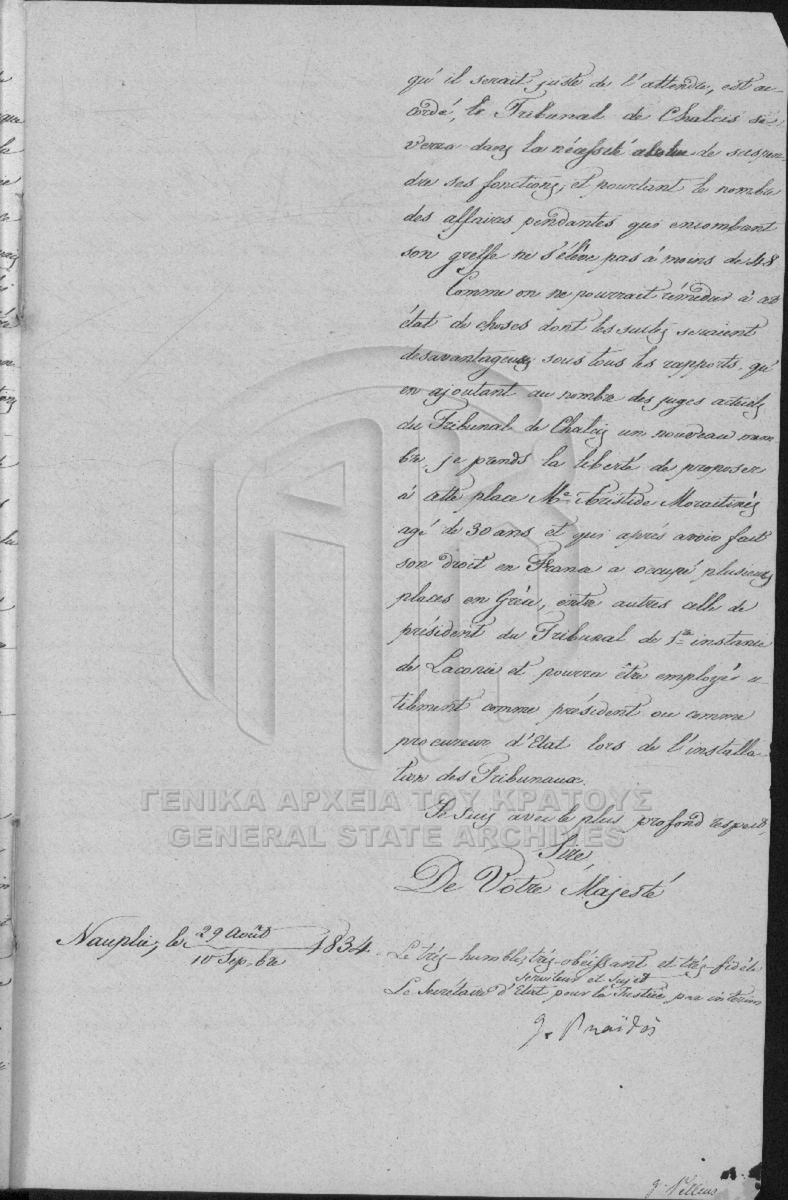 qu'il serait juste de l'attendre, est ac-
cordé, le Tribunal de Chalcis se
verra dans la nécessité absolue de suspen-
dre ses fonctions, et pourtant le nombre
des affaires pendantes qui encombrent
son greffe ne s'élève pas à moins de 48
Comme on ne pourrait rémédier à cet
état de choses dont les suites seraient
desavantageuses sous tous les rapports qu'
en ajoutant au nombre des juges actuels
du Tribunal de Chalcis un nouveau mem-
bre, je prends la liberté de proposer
à cette place Mr. Aristide Moraitinis
agé de 30 ans et qui après avoir fait
son droit en France a occupé plusieurs
places en Grèce, entre autres celle de
président du Tribunal de 1re instance
de Laconie et pourra être employé u-
tilement comme président ou comme
procureur d'Etat lors de l'installa-
tion des Tribunaux.
Je suis avec le plus profond respect,
Sire,
De Votre Majesté
Nauplie, le 29 Août / 10 Sep-bre 1834.
Le très-humble, très-obéissant et très-fidèle
serviteur et sujet
Le Secrétaire d'Etat pour la Justice par interim
G. Praïdis
ΓΕΝΙΚΑ ΑΡΧΕΙΑ ΤΟΥ ΚΡΑΤΟΥΣ
GENERAL STATE ARCHIVES